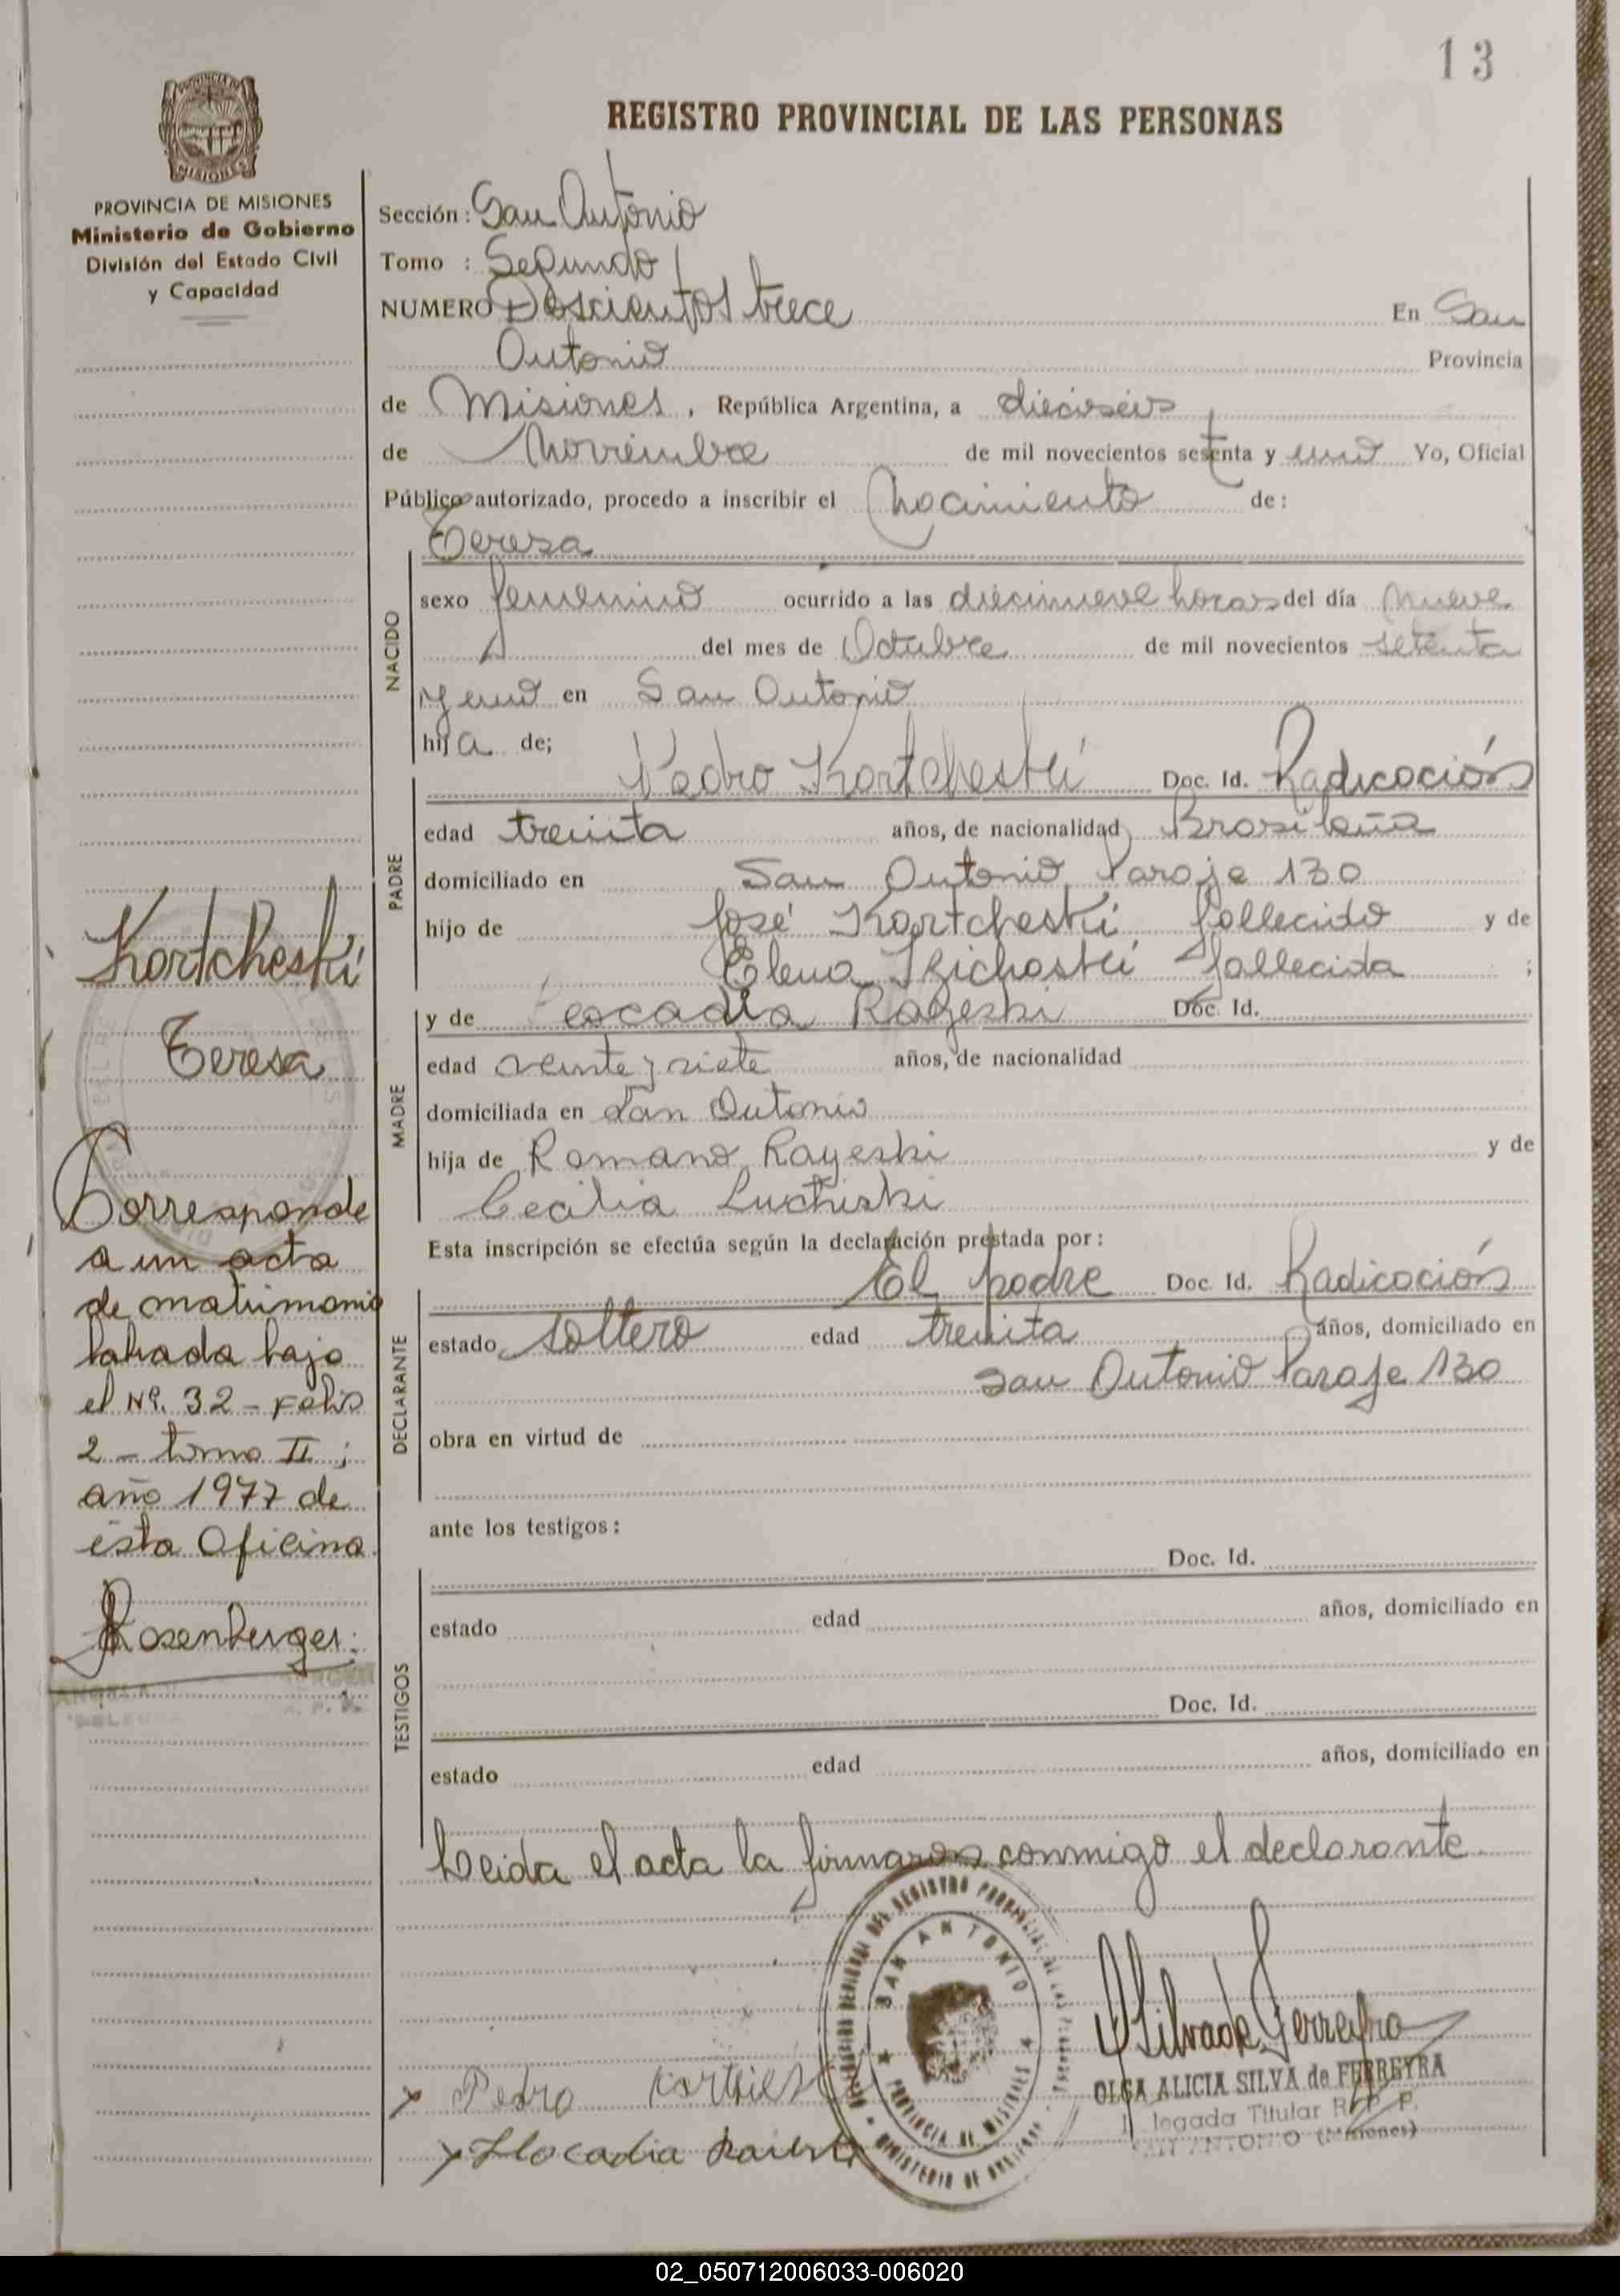 13
REGISTRO PROVINCIAL DE LAS PERSONAS
PROVINCIA DE MISIONES
Ministerio de Gobierno
División del Estado Civil
y Capacidad
Sección: San Antonio
Tomo : Segundo
NUMERO Doscientos trece En San
Antonio Provincia
de Misiones, República Argentina, a dieciseis
de Noviembre de mil novecientos setenta y uno Yo, Oficial
Público autorizado, procedo a inscribir el Nacimiento de:
Teresa
NACIDO
sexo femenino ocurrido a las diecinueve horas del día nueve
del mes de Octubre de mil novecientos setenta
y uno en San Antonio
hija de;
PADRE
Pedro Kortcheski Doc. Id. Radicación
edad treinta años, de nacionalidad Brasileña
domiciliado en San Antonio Paraje 130
hijo de José Kortcheski fallecido y de
Elena fallecida ;
MADRE
y de Rageski Doc. Id.
edad veinte y siete años, de nacionalidad
domiciliada en San Antonio
hija de Romano Rayeski y de
Cecilia Luchiski
Esta inscripción se efectúa según la declaración prestada por:
DECLARANTE
El padre Doc. Id. Radicación
estado soltero edad treinta años, domiciliado en
San Antonio Paraje 130
obra en virtud de
ante los testigos:
TESTIGOS
Doc. Id.
estado edad años, domiciliado en
Doc. Id.
estado edad años, domiciliado en
Leida el acta la firmaron conmigo el declarante
Kortcheski
Teresa
Corresponde
a un acta
de matrimonio
labrada bajo
el Nº. 32 - Folio
2 - tomo II ;
año 1977 de
ésta Oficina.
Rosenberger
ANGELA
SAN ANTONIO
PROVINCIA DE MISIONES
x Pedro
x
OLGA ALICIA SILVA de FERREYRA
Titular R. P. P.
SAN ANTONIO (Misiones)
02_050712006033-006020